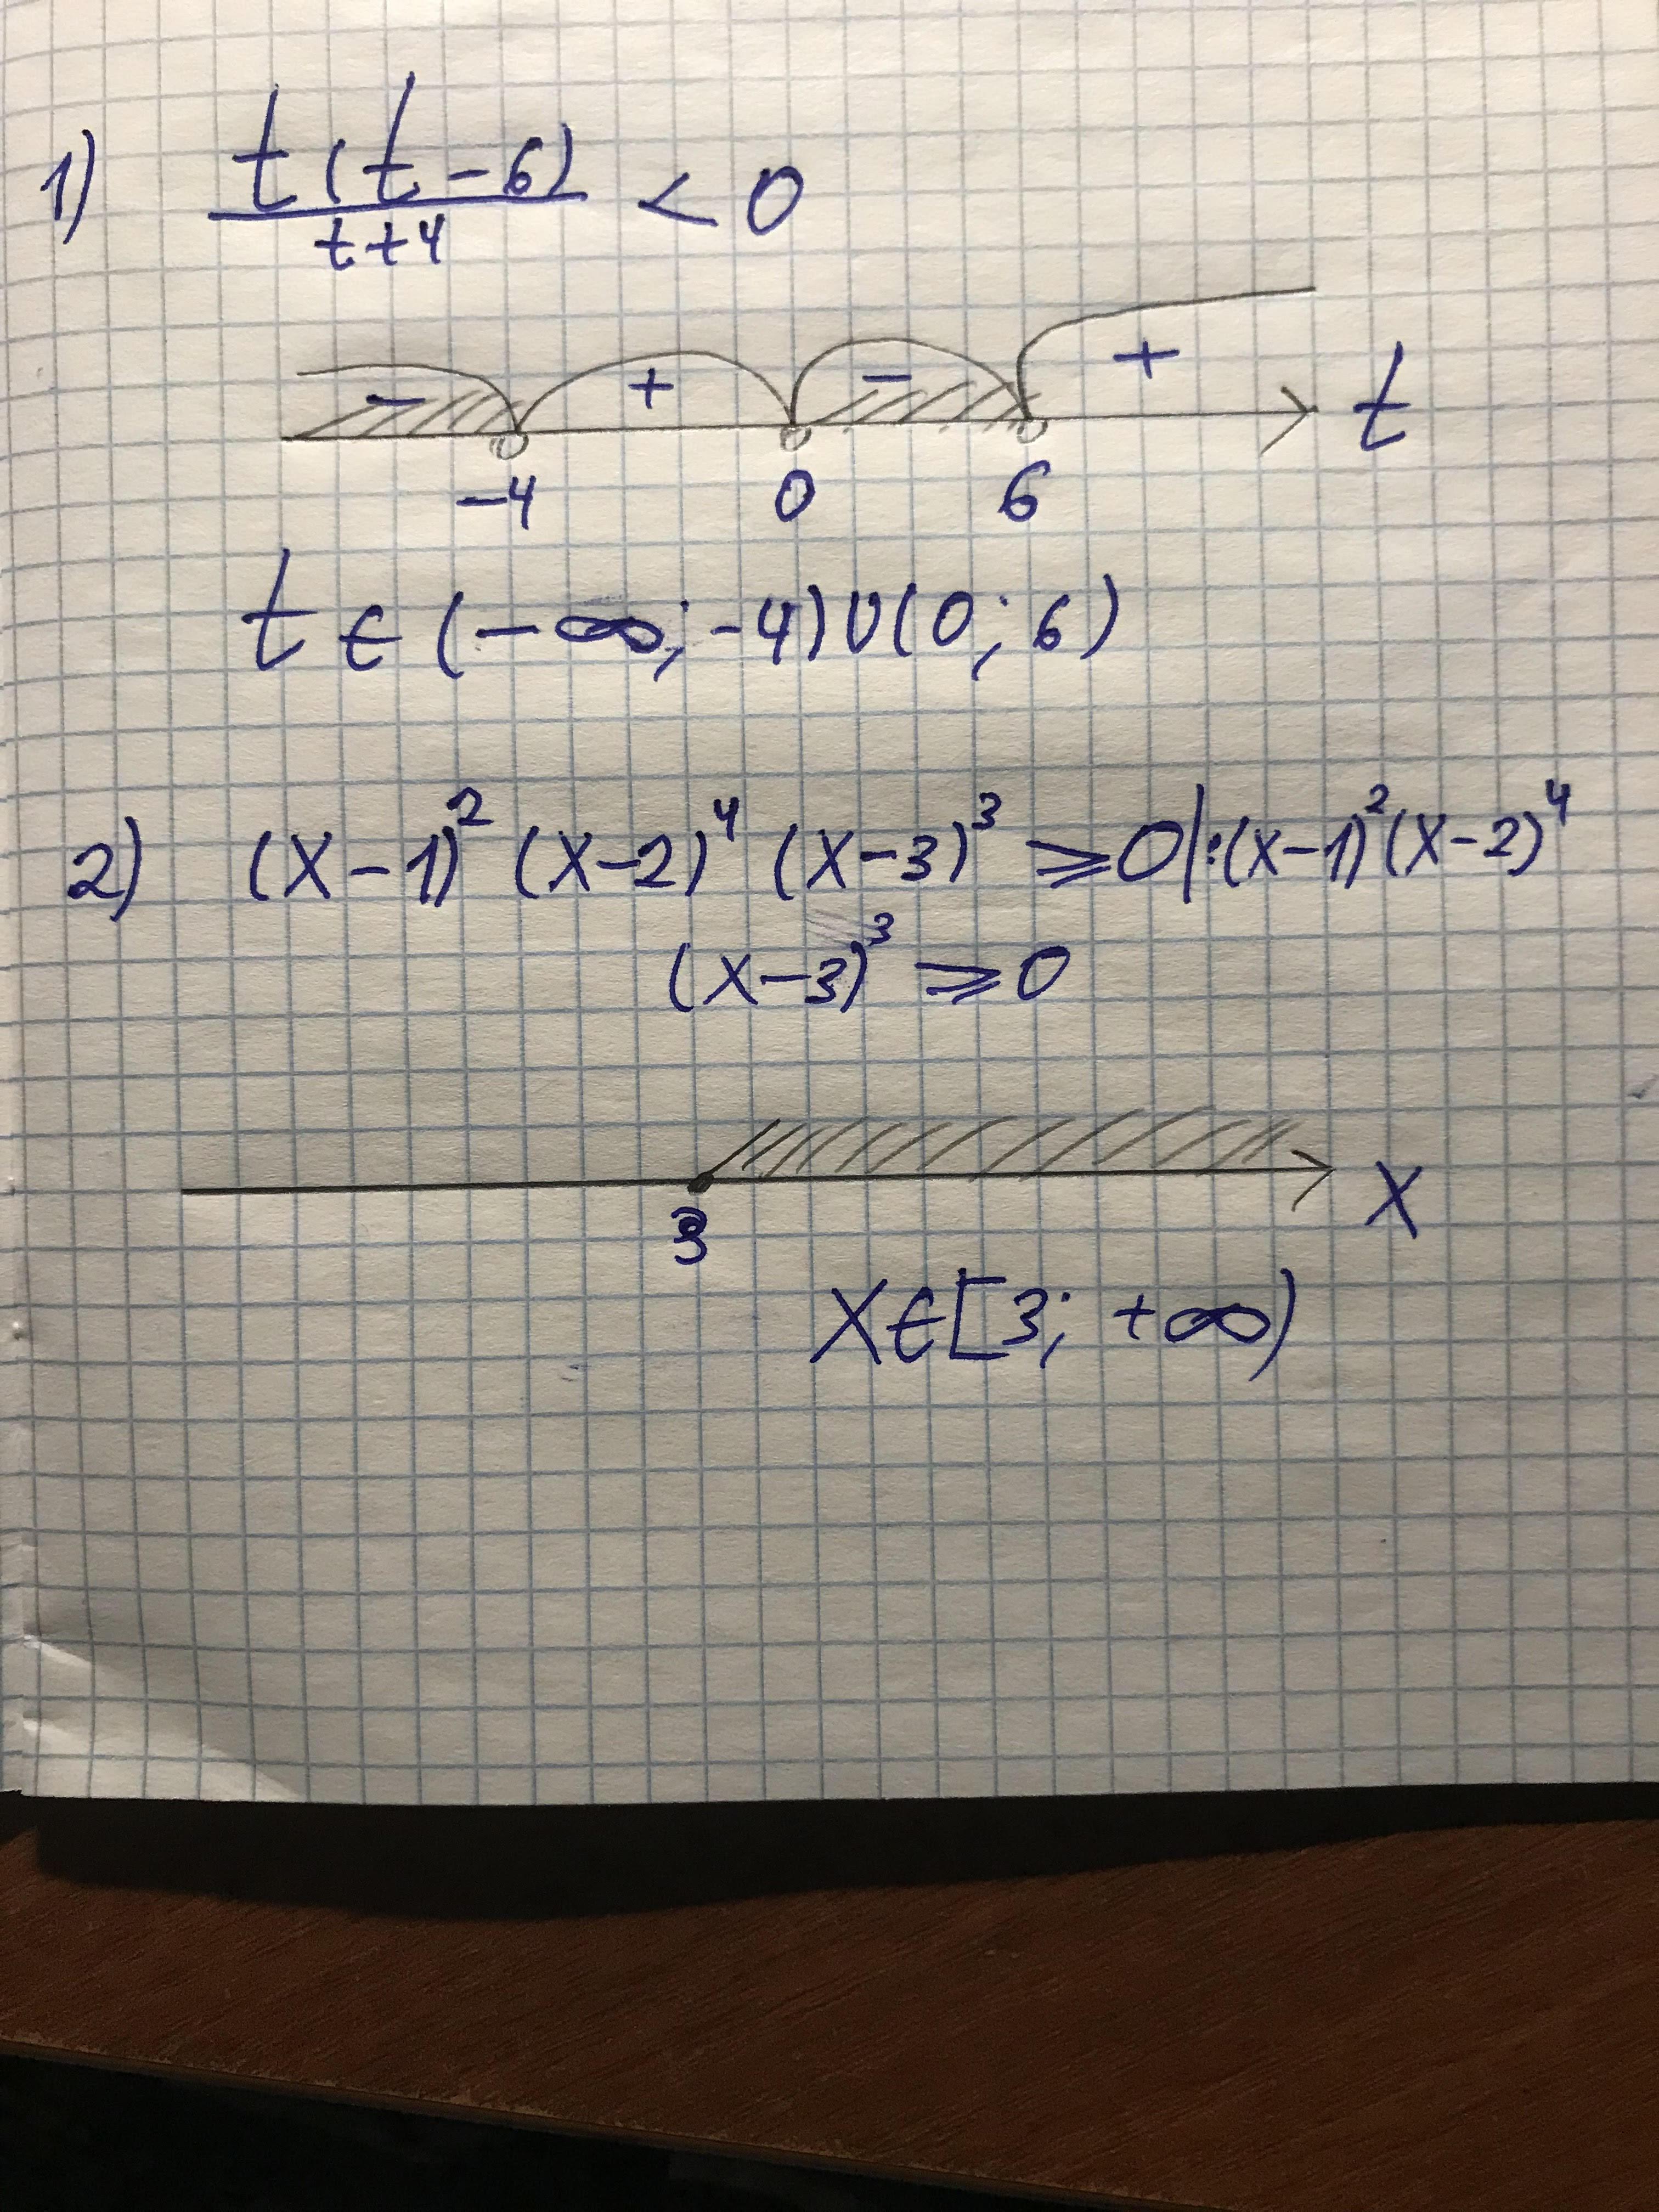 1) t(t-6)/t+4 < 0
- + - + t
-4 0 6
t ∈ (-∞; -4)∪(0; 6)
2) (x-1)² (x-2)⁴ (x-3)³ ⩾ 0 |:(x-1)²(x-2)⁴
(x-3)³ ⩾ 0
3 x
x∈[3; +∞)